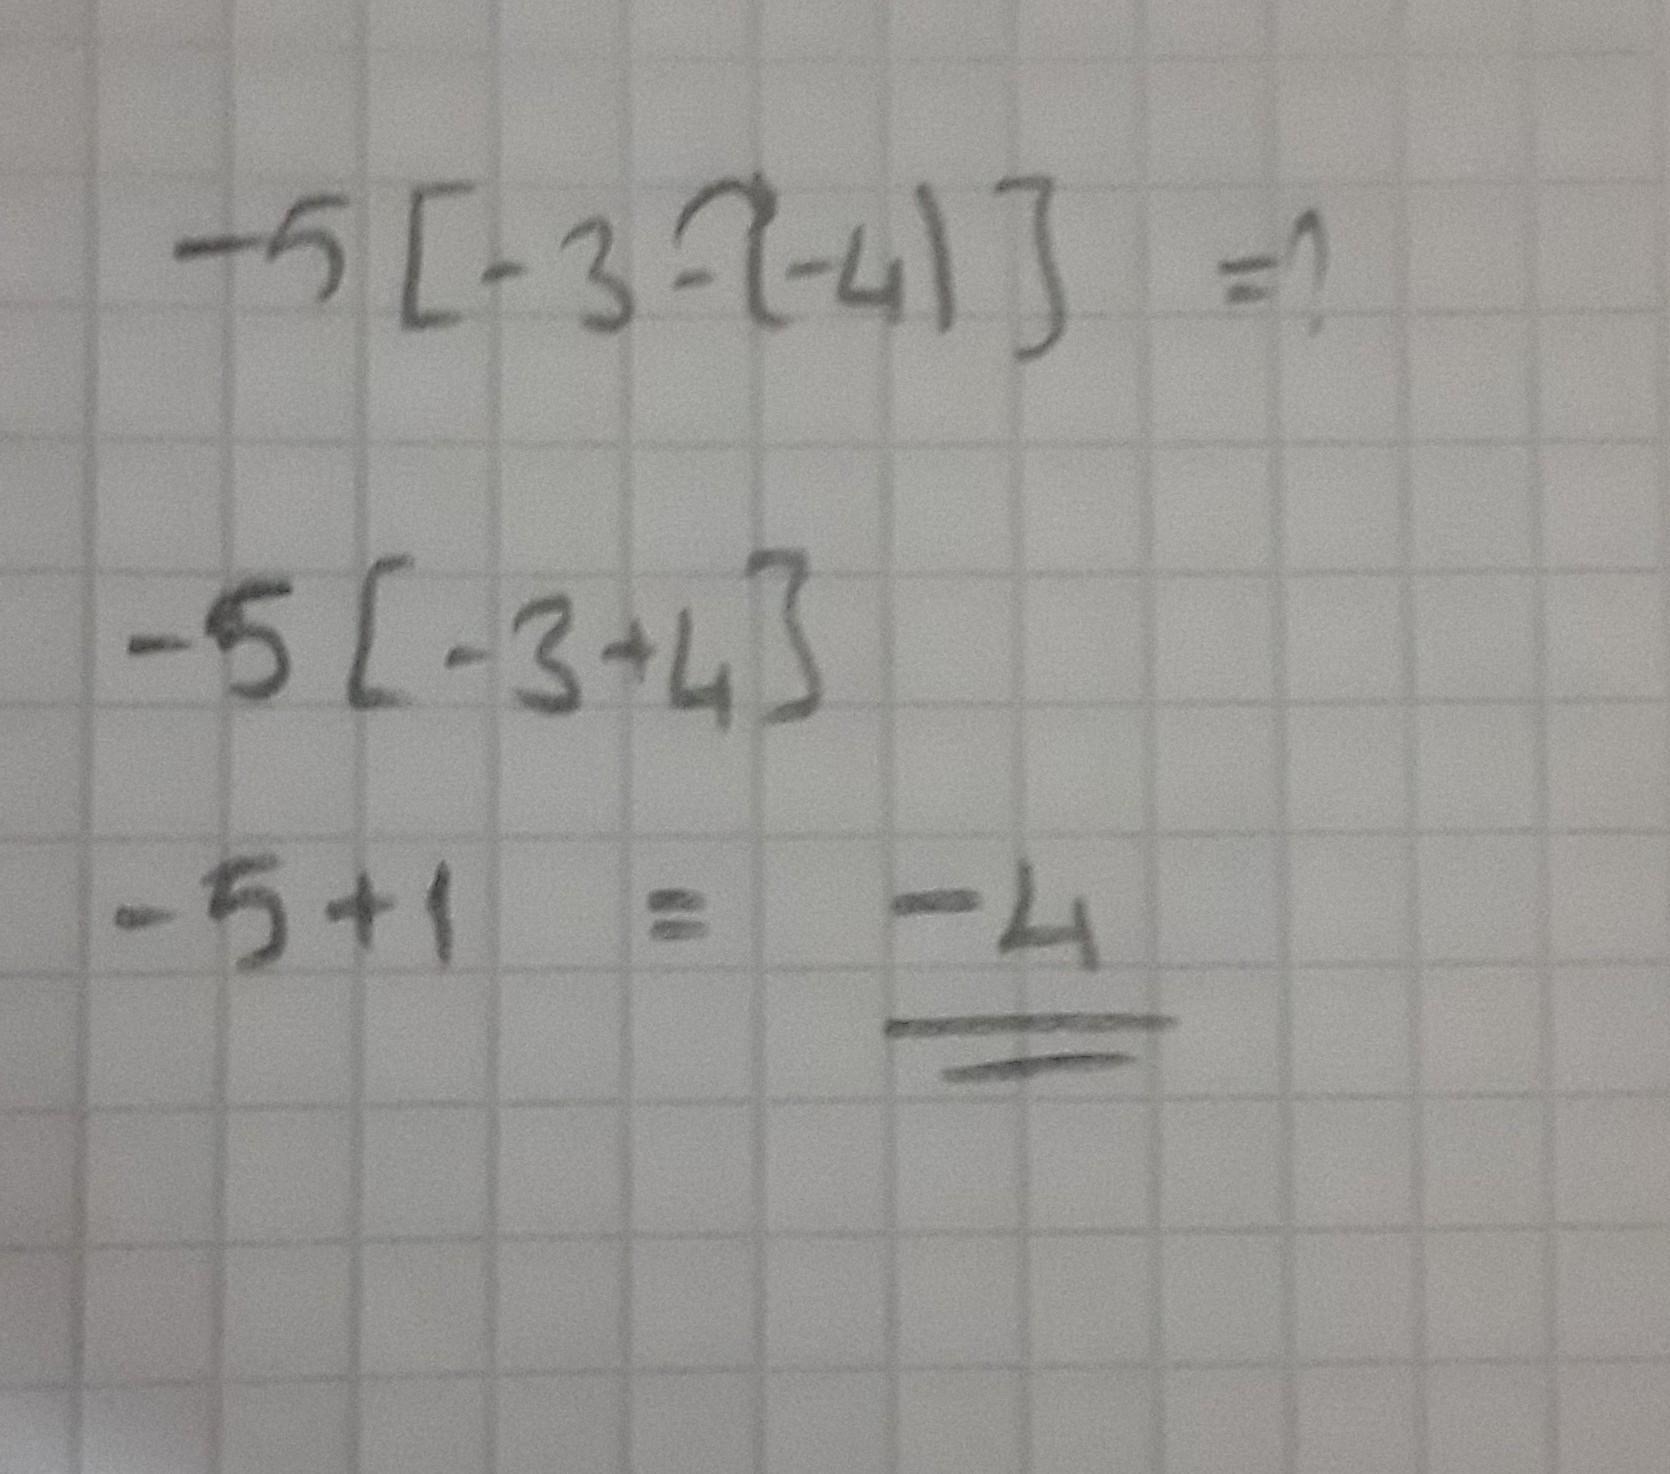 -5[-3-(-4)] =?
-5[-3+4]
-5+1 = -4